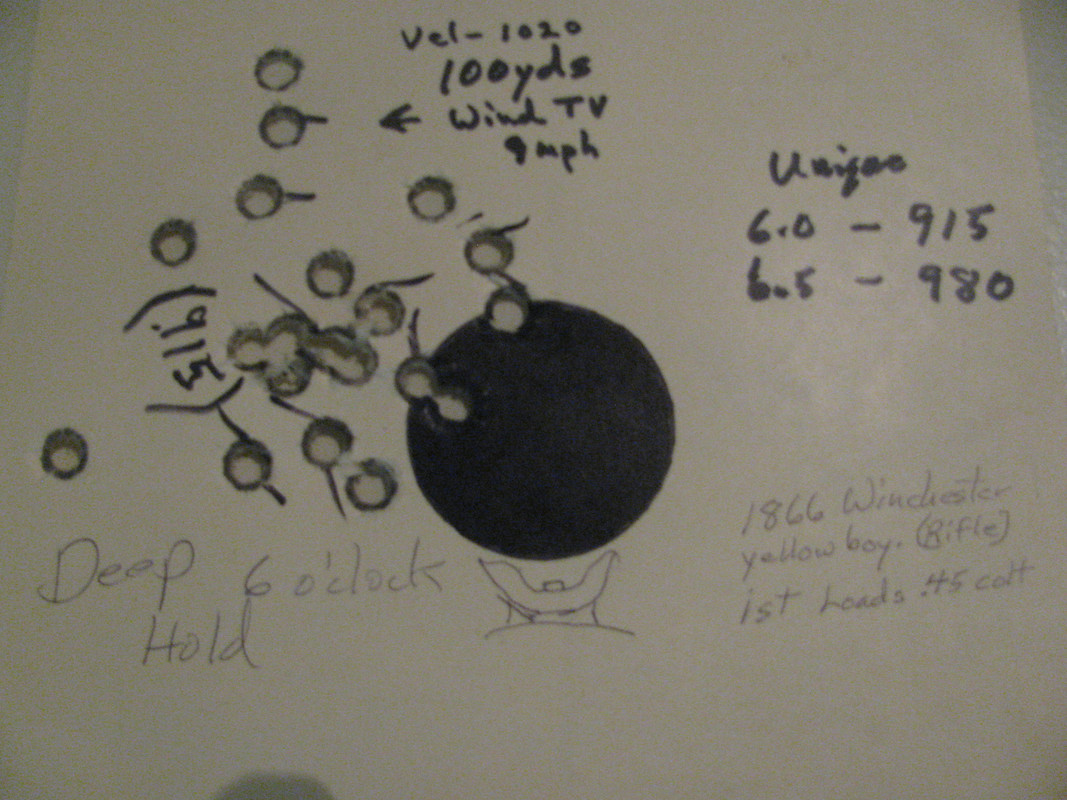 Vel - 1020
100yds
← Wind TV
9 mph
Unique
6.0 - 915
6.5 - 980
(915)
Deep 6 o'clock
Hold
1866 Winchester
yellow boy. (Rifle)
1st Loads .45 colt